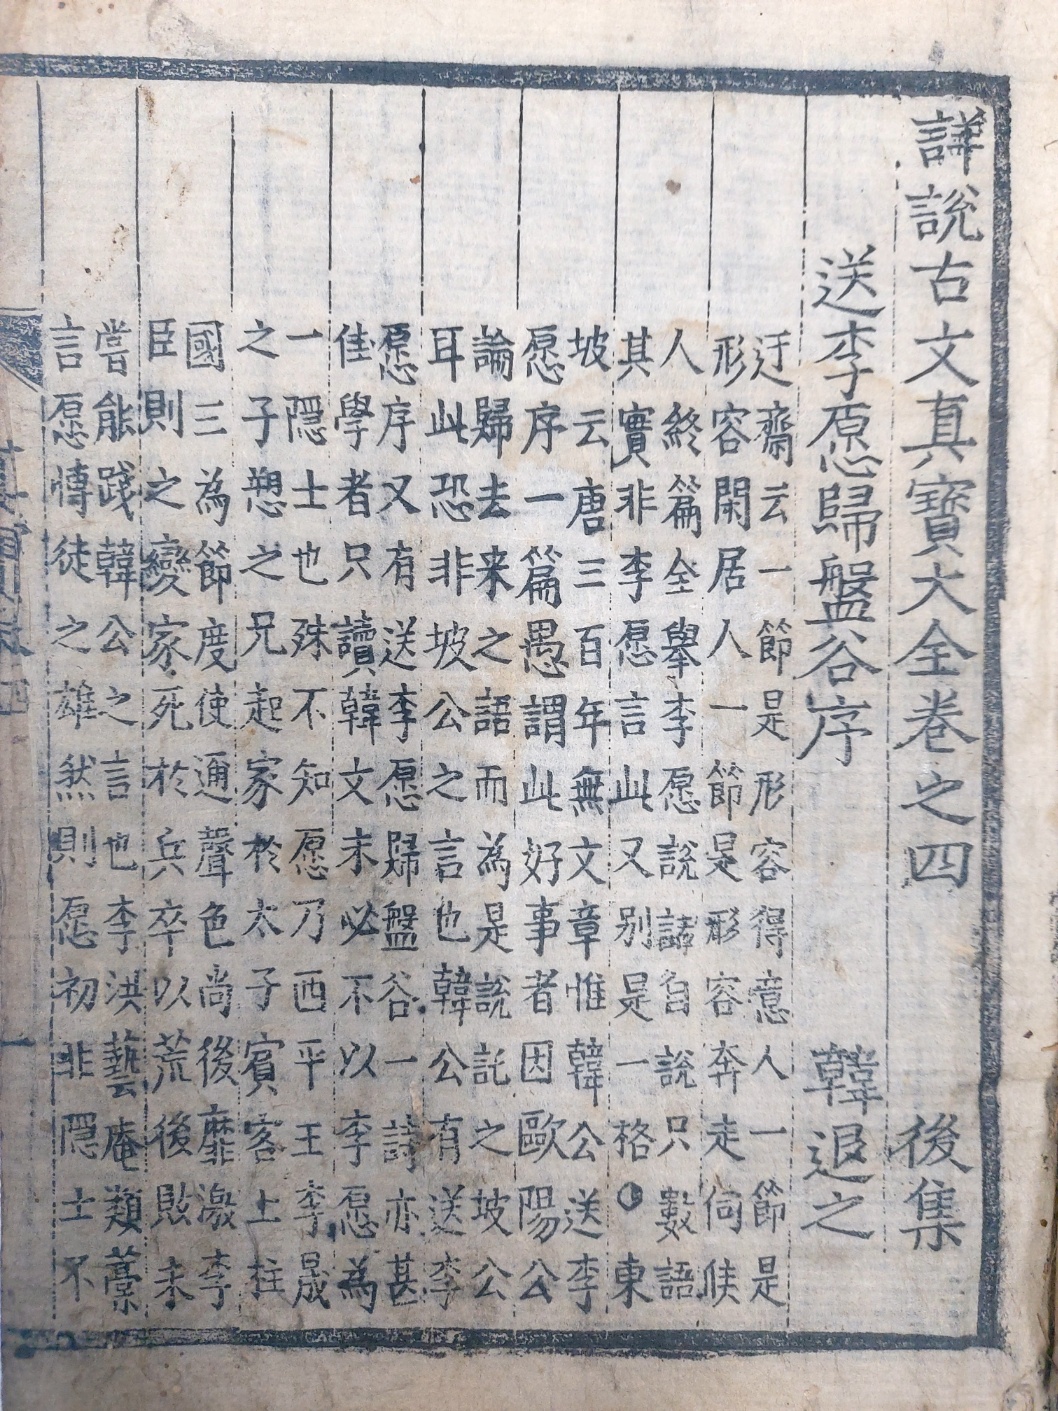 詳說古文真寶大全卷之四 後集
送李愿歸盤谷序 韓退之
迂齋云一節是形容得意人一節是
形容閑居人一節是形容奔走伺候
人終篇全擧李愿說話自說只數語
其實非李愿言此又別是一格 東
坡云唐三百年無文章惟韓公送李
愿序一篇愚謂此好事者因歐陽公
論歸去来之語而為是說託之坡公
耳此恐非坡公之言也韓公有送李
愿序又有送李愿歸盤谷一詩亦甚
佳學者只讀韓文未必不以李愿為
一隱士也殊不知愿乃西平王李晟
之子愬之兄起家於太子賓客上柱
國三為節度使邇聲色尚後靡激李
臣則之變家死於兵卒以荒後敗未
嘗能踐韓公之言也李洪藝庵類藁
言愿慱徒之雄然則愿初非隱士不